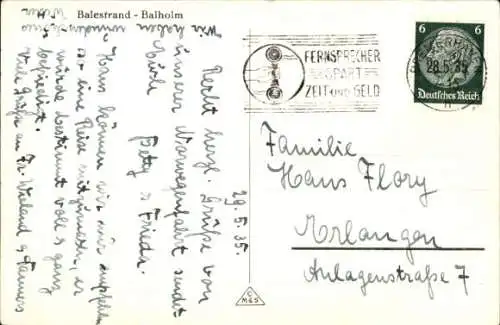 Balestrand - Balholm
Recht herzl. Grüße von
unserer Norwegenfahrt sendet
Euch
Betty u Frieda.
29.5.35.
Wir haben
wundervolles
Hans können wir nur empfehlen
so eine Reise mitzumachen, er
würde bestimmt voll u ganz
befriedigt.
Viele Grüße an Fr. Wieland u
FERNSPRECHER
SPART
ZEIT UND GELD
28.5.35
6
6
Deutsches Reich
Familie
Hans Flory
Erlangen
Anlagenstraße 7
C
M&S